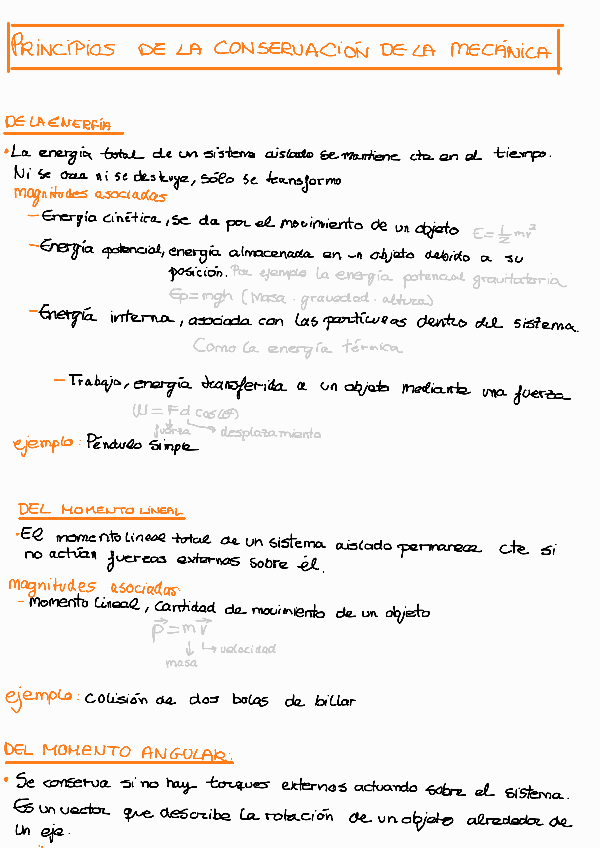 PRINCIPIOS DE LA CONSERVACIÓN DE LA MECÁNICA
DE LA ENERGÍA
• La energía total de un sistema aislado se mantiene cte en el tiempo.
Ni se crea ni se destruye, sólo se transforma
magnitudes asociadas
– Energía cinética, se da por el movimiento de un objeto E = 1/2 mv²
– Energía potencial, energía almacenada en un objeto debido a su
posición. Por ejemplo la energía potencial gravitatoria
Ep = mgh (Masa · gravedad · altura)
– Energía interna, asociada con las partículas dentro del sistema.
Como la energía térmica
– Trabajo, energía transferida a un objeto mediante una fuerza
W = Fd cos(θ)
fuerza ↳ desplazamiento
ejemplo: Péndulo simple
DEL MOMENTO LINEAL
• El momento lineal total de un sistema aislado permanece cte si
no actúan fuerzas externas sobre él.
magnitudes asociadas:
– momento lineal, cantidad de movimiento de un objeto
p⃗ = m v⃗
↓ ↳ velocidad
masa
ejemplo: colisión de dos bolas de billar
DEL MOMENTO ANGULAR:
• Se conserva si no hay torques externos actuando sobre el sistema.
Es un vector que describe la rotación de un objeto alrededor de
un eje.